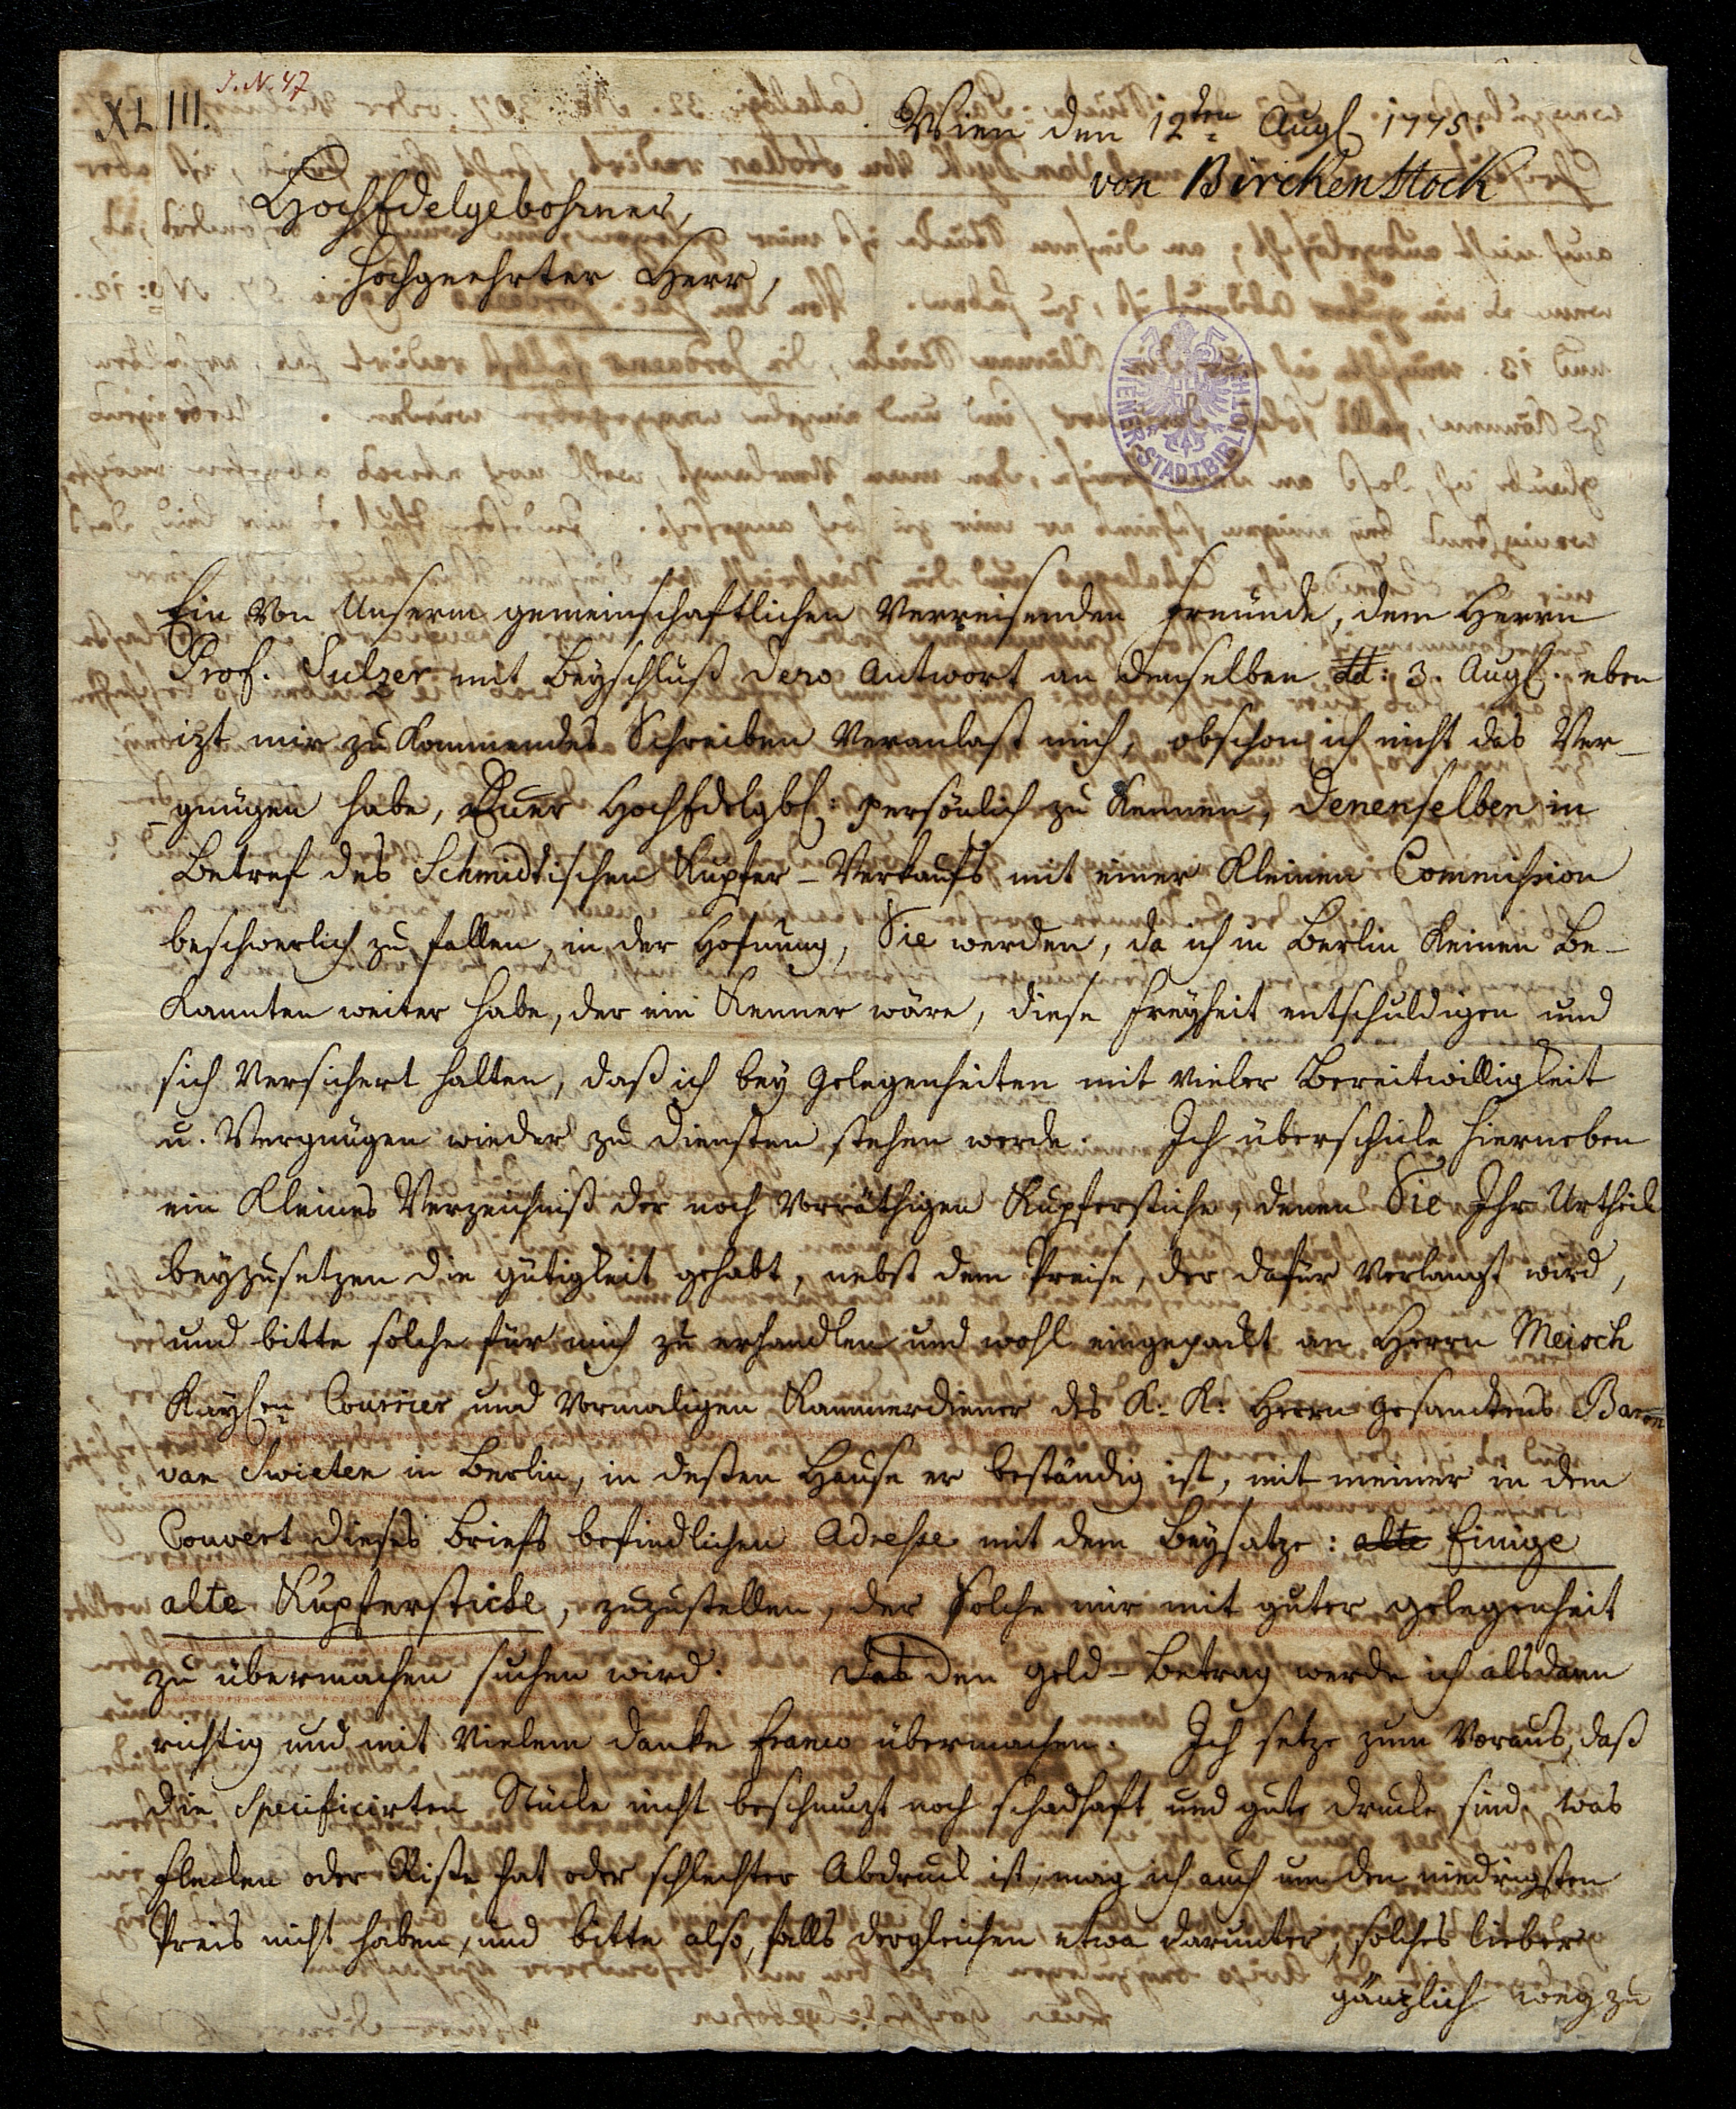 J. N. 47
XLIII.
Wien den 12ten Augl 1775.
von Birckenstock
HochEdelgebohrner,
Hochgeehrter Herr,
WIENER STADTBIBLIOTHEK
Ein von Unserm gemeinschaftlichen Verreisenden Freunde, dem Herrn
Prof. Sulzer mit Beyschluß dero Antwort an denselben dd: 3. Augl. eben
izt mir zu kommendes Schreiben veranlast mich, obschon ich nicht das Ver-
-gnügen habe, Euer HochEdelgbl: persönlich zu kennen, Denenselben in
Betref des Schmidtischen Kupfer-Verkaufs mit einer kleinen Commission
beschwerlich zu fallen, in der Hofnung, Sie werden, da ich in Berlin keinen Be-
kannten weiter habe, der ein Kenner wäre, diese Freyheit entschuldigen und
sich versichert halten, daß ich bey Gelegenheiten mit vieler Bereitwilligkeit
u. Vergnügen wieder zu Diensten stehen werde. Ich überschicke hierneben
ein kleines Verzeichniß der noch vorräthigen Kupferstiche, denen Sie Ihr Urtheil
beyzusetzen die gütigkeit gehabt, nebst dem Preise, der dafür verlangt wird,
und bitte solche für mich zu erhandlen und wohl eingepackt an Herrn Meisch
Kayslen Courier und vormaligen Kammerdiener des K: K: Herrn Gesandtens Baron
van Swieten in Berlin, in deßen Hause er beständig ist, mit meiner in dem
Couvert dieses Briefs befindlichen Adresse mit dem Beysatze: alte Einige
alte Kupferstiche, zuzustellen, der solche mir mit guter gelegenheit
zu übermachen suchen wird. Das den Geld-Betrag werde ich alsdann
richtig und mit vielem Danke franco übermachen. Ich setze zum Voraus, daß
die Specificirten Stücke nicht beschmuzt noch schadhaft und gute Drucke sind. was
Flecken oder Riße hat oder schlechter Abdruck ist, mag ich auch um den niedrigsten
Preis nicht haben, und bitte also, falls dergleichen etwa darunter, solches lieber
gänzlich weg zu